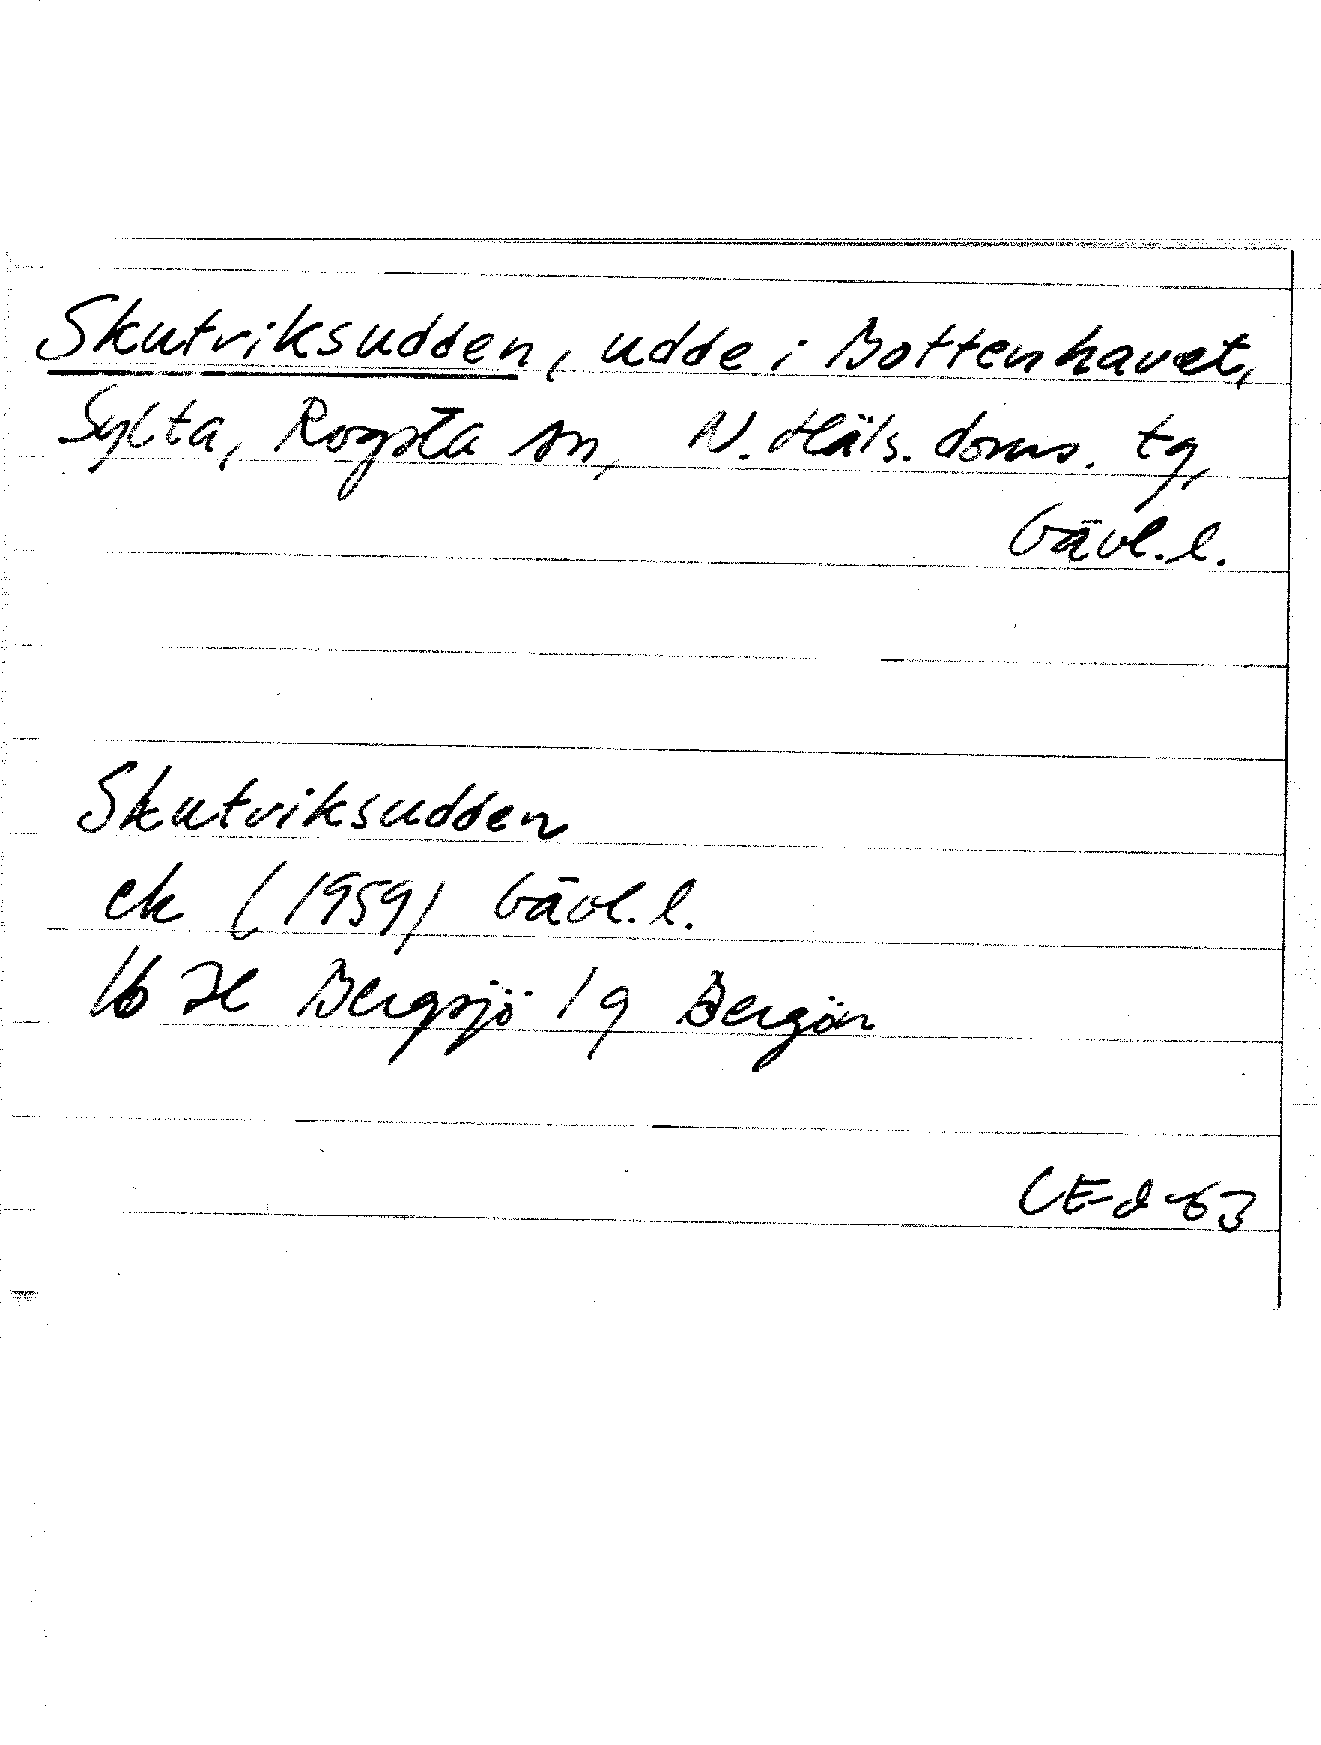 Skutviksudden, udde i Bottenhavet,
Sylta, Rogsta sn, N. Häls. doms. tg,
Gävl. l.
Skutviksudden
ek (1959) Gävl. l.
16 H Bergsjö 1 g Bergön
CEd -63